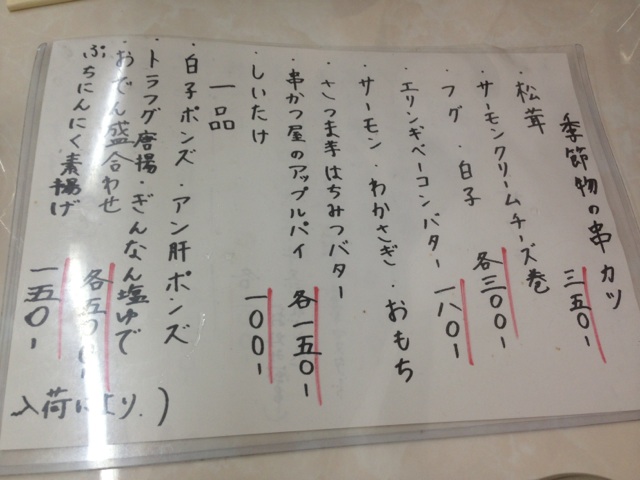 季節物の串カツ
・松茸 三五〇-
・サーモンクリームチーズ巻
・フグ・白子 各三〇〇-
・エリンギベーコンバター 一八〇-
・サーモン・わかさぎ・おもち
・さつま芋はちみつバター
・串かつ屋のアップルパイ 各一五〇-
・しいたけ 一〇〇-
一品
・白子ポンズ・アン肝ポンズ
・トラフグ唐揚・ぎんなん塩ゆで
・おでん盛合わせ 各五〇〇-
ぷちにんにく素揚げ 一五〇-
入荷により、)